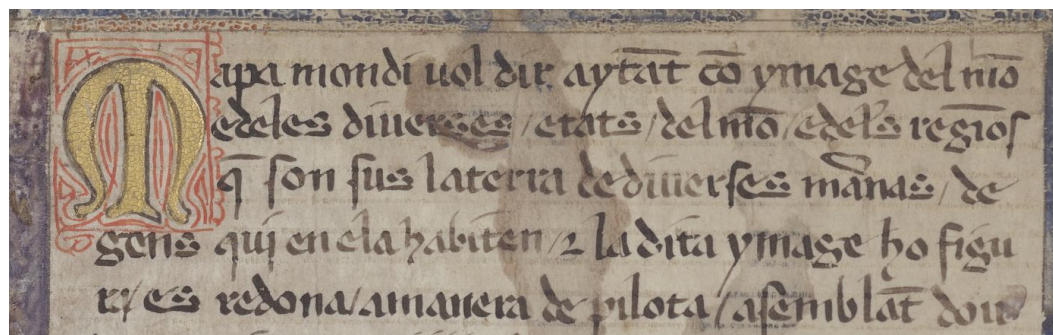 Mapa mondi uol dir aytāt cō ymage del mō
edeles diuerses / etats / del mō / edel's regiōs
q̄ son sus laterra de diuerses mānas / de
gens qui en ela habiten / ⁊ la dita ymage ho figu
ra / es redona / amanera de pilota / asemblāt dou